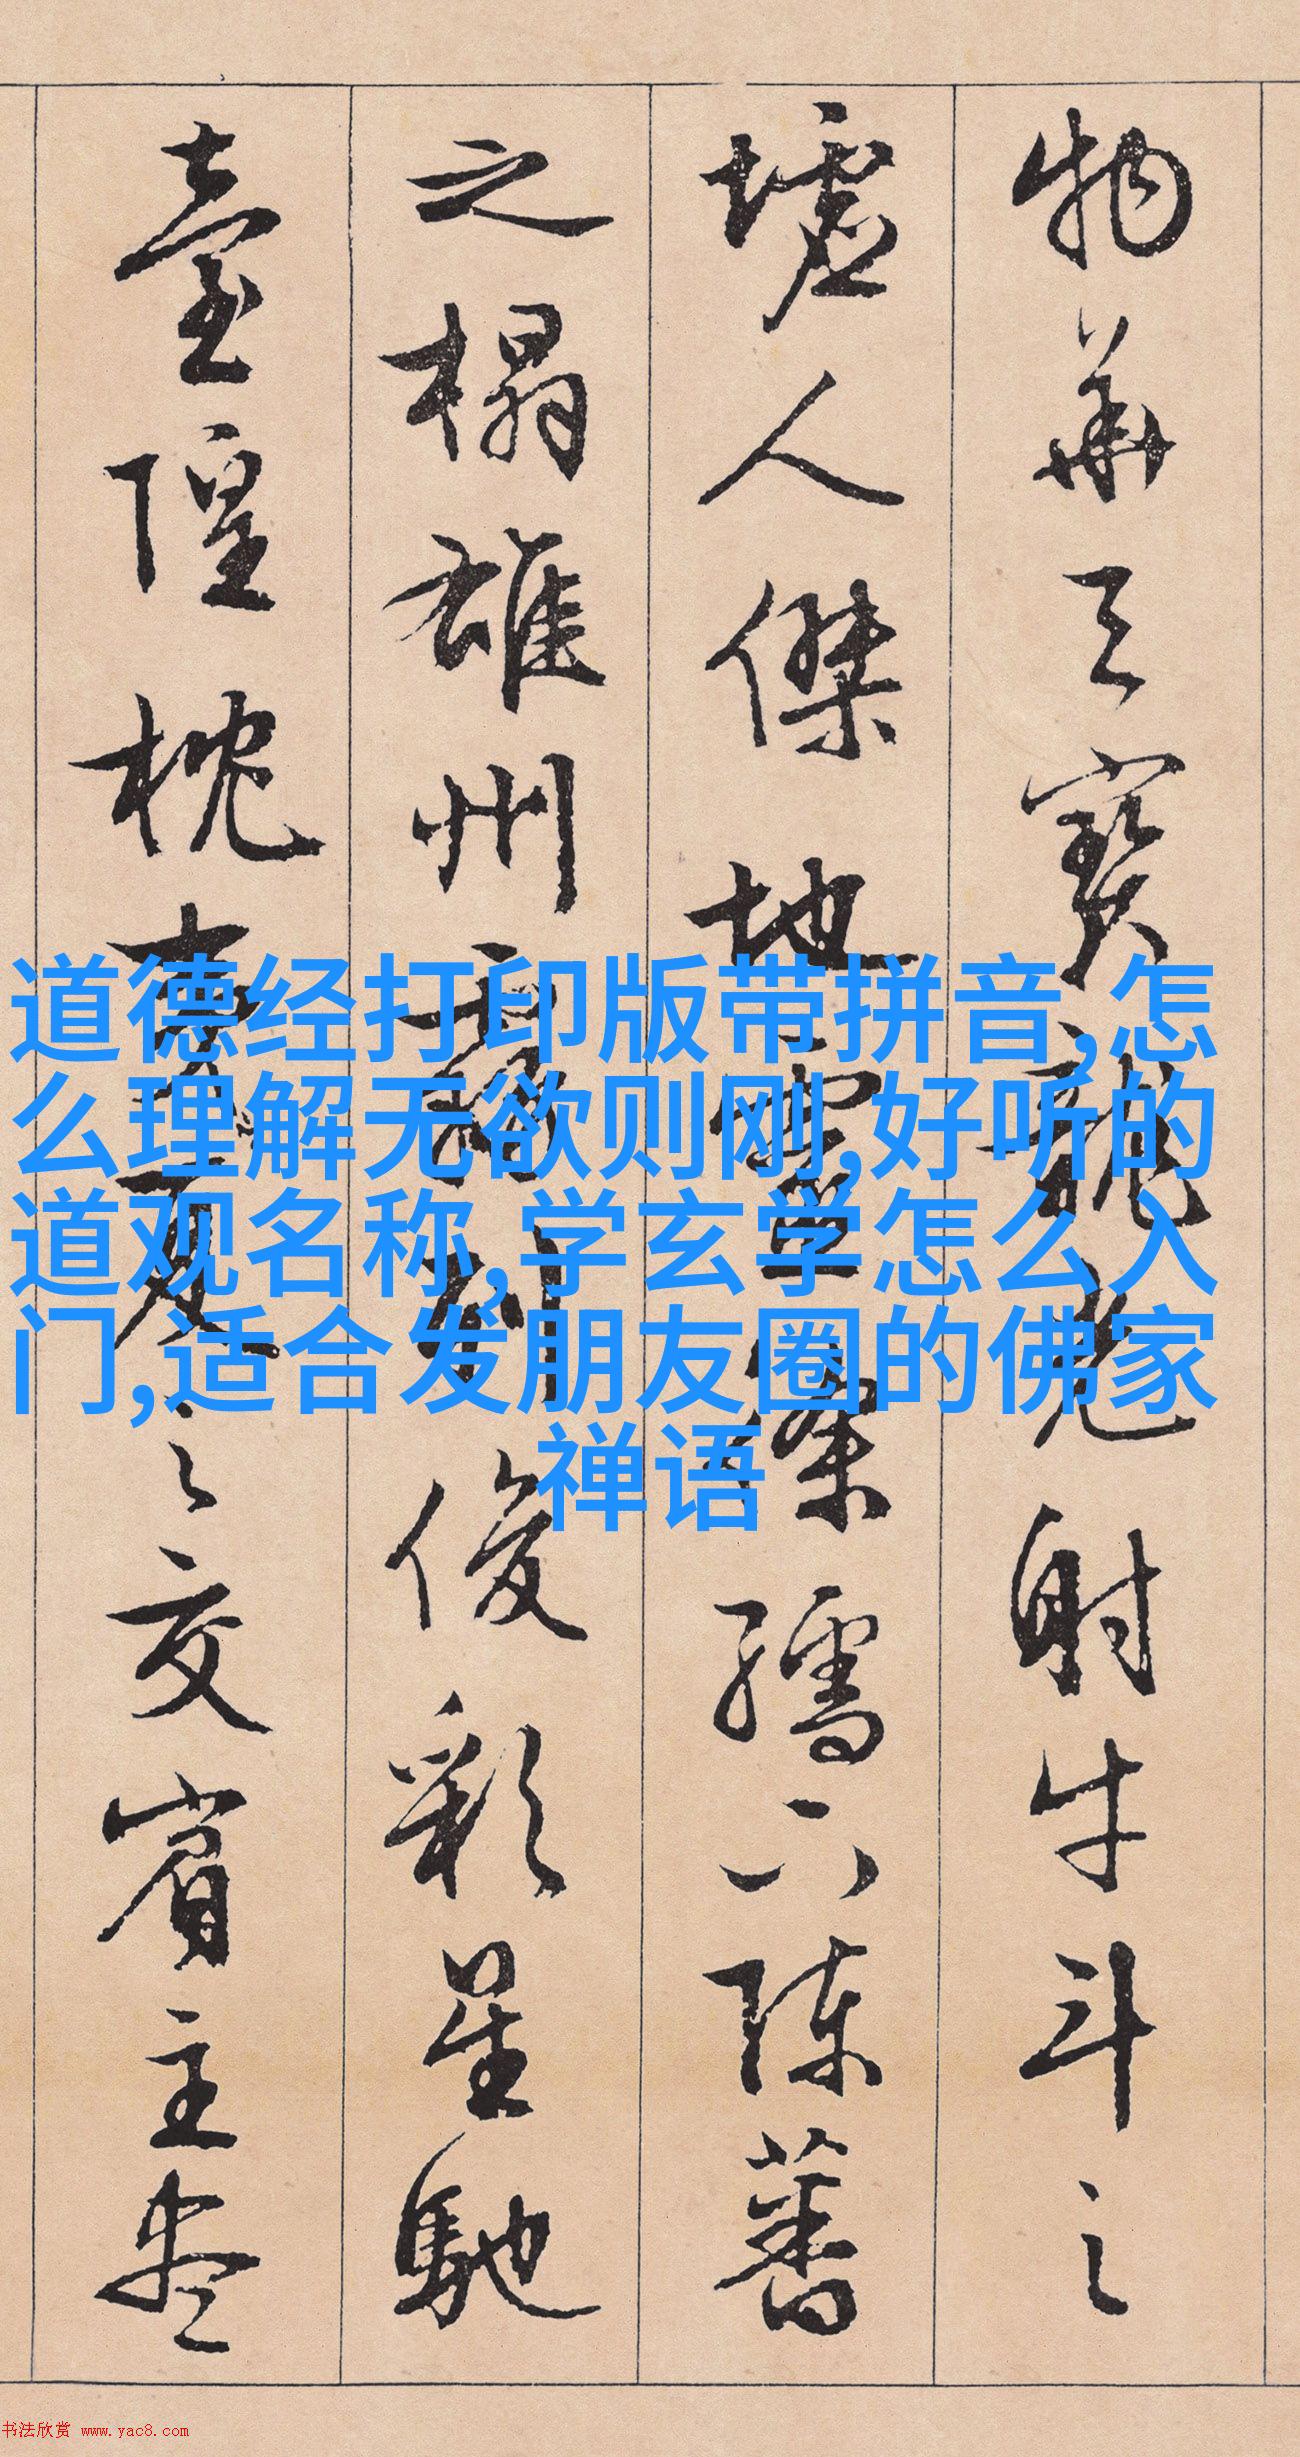 物华天宝龙光射牛斗之
墟人傑地霊傑孺下陈蕃
之榻雄州雾列俊彩星馳
臺隍枕夷夏之交宾主尽
道德经打印版带拼音,怎
么理解无欲则刚,好听的
道观名称,学玄学怎么入
门,适合发朋友圈的佛家
禅语
书法欣赏 www.yac8.com